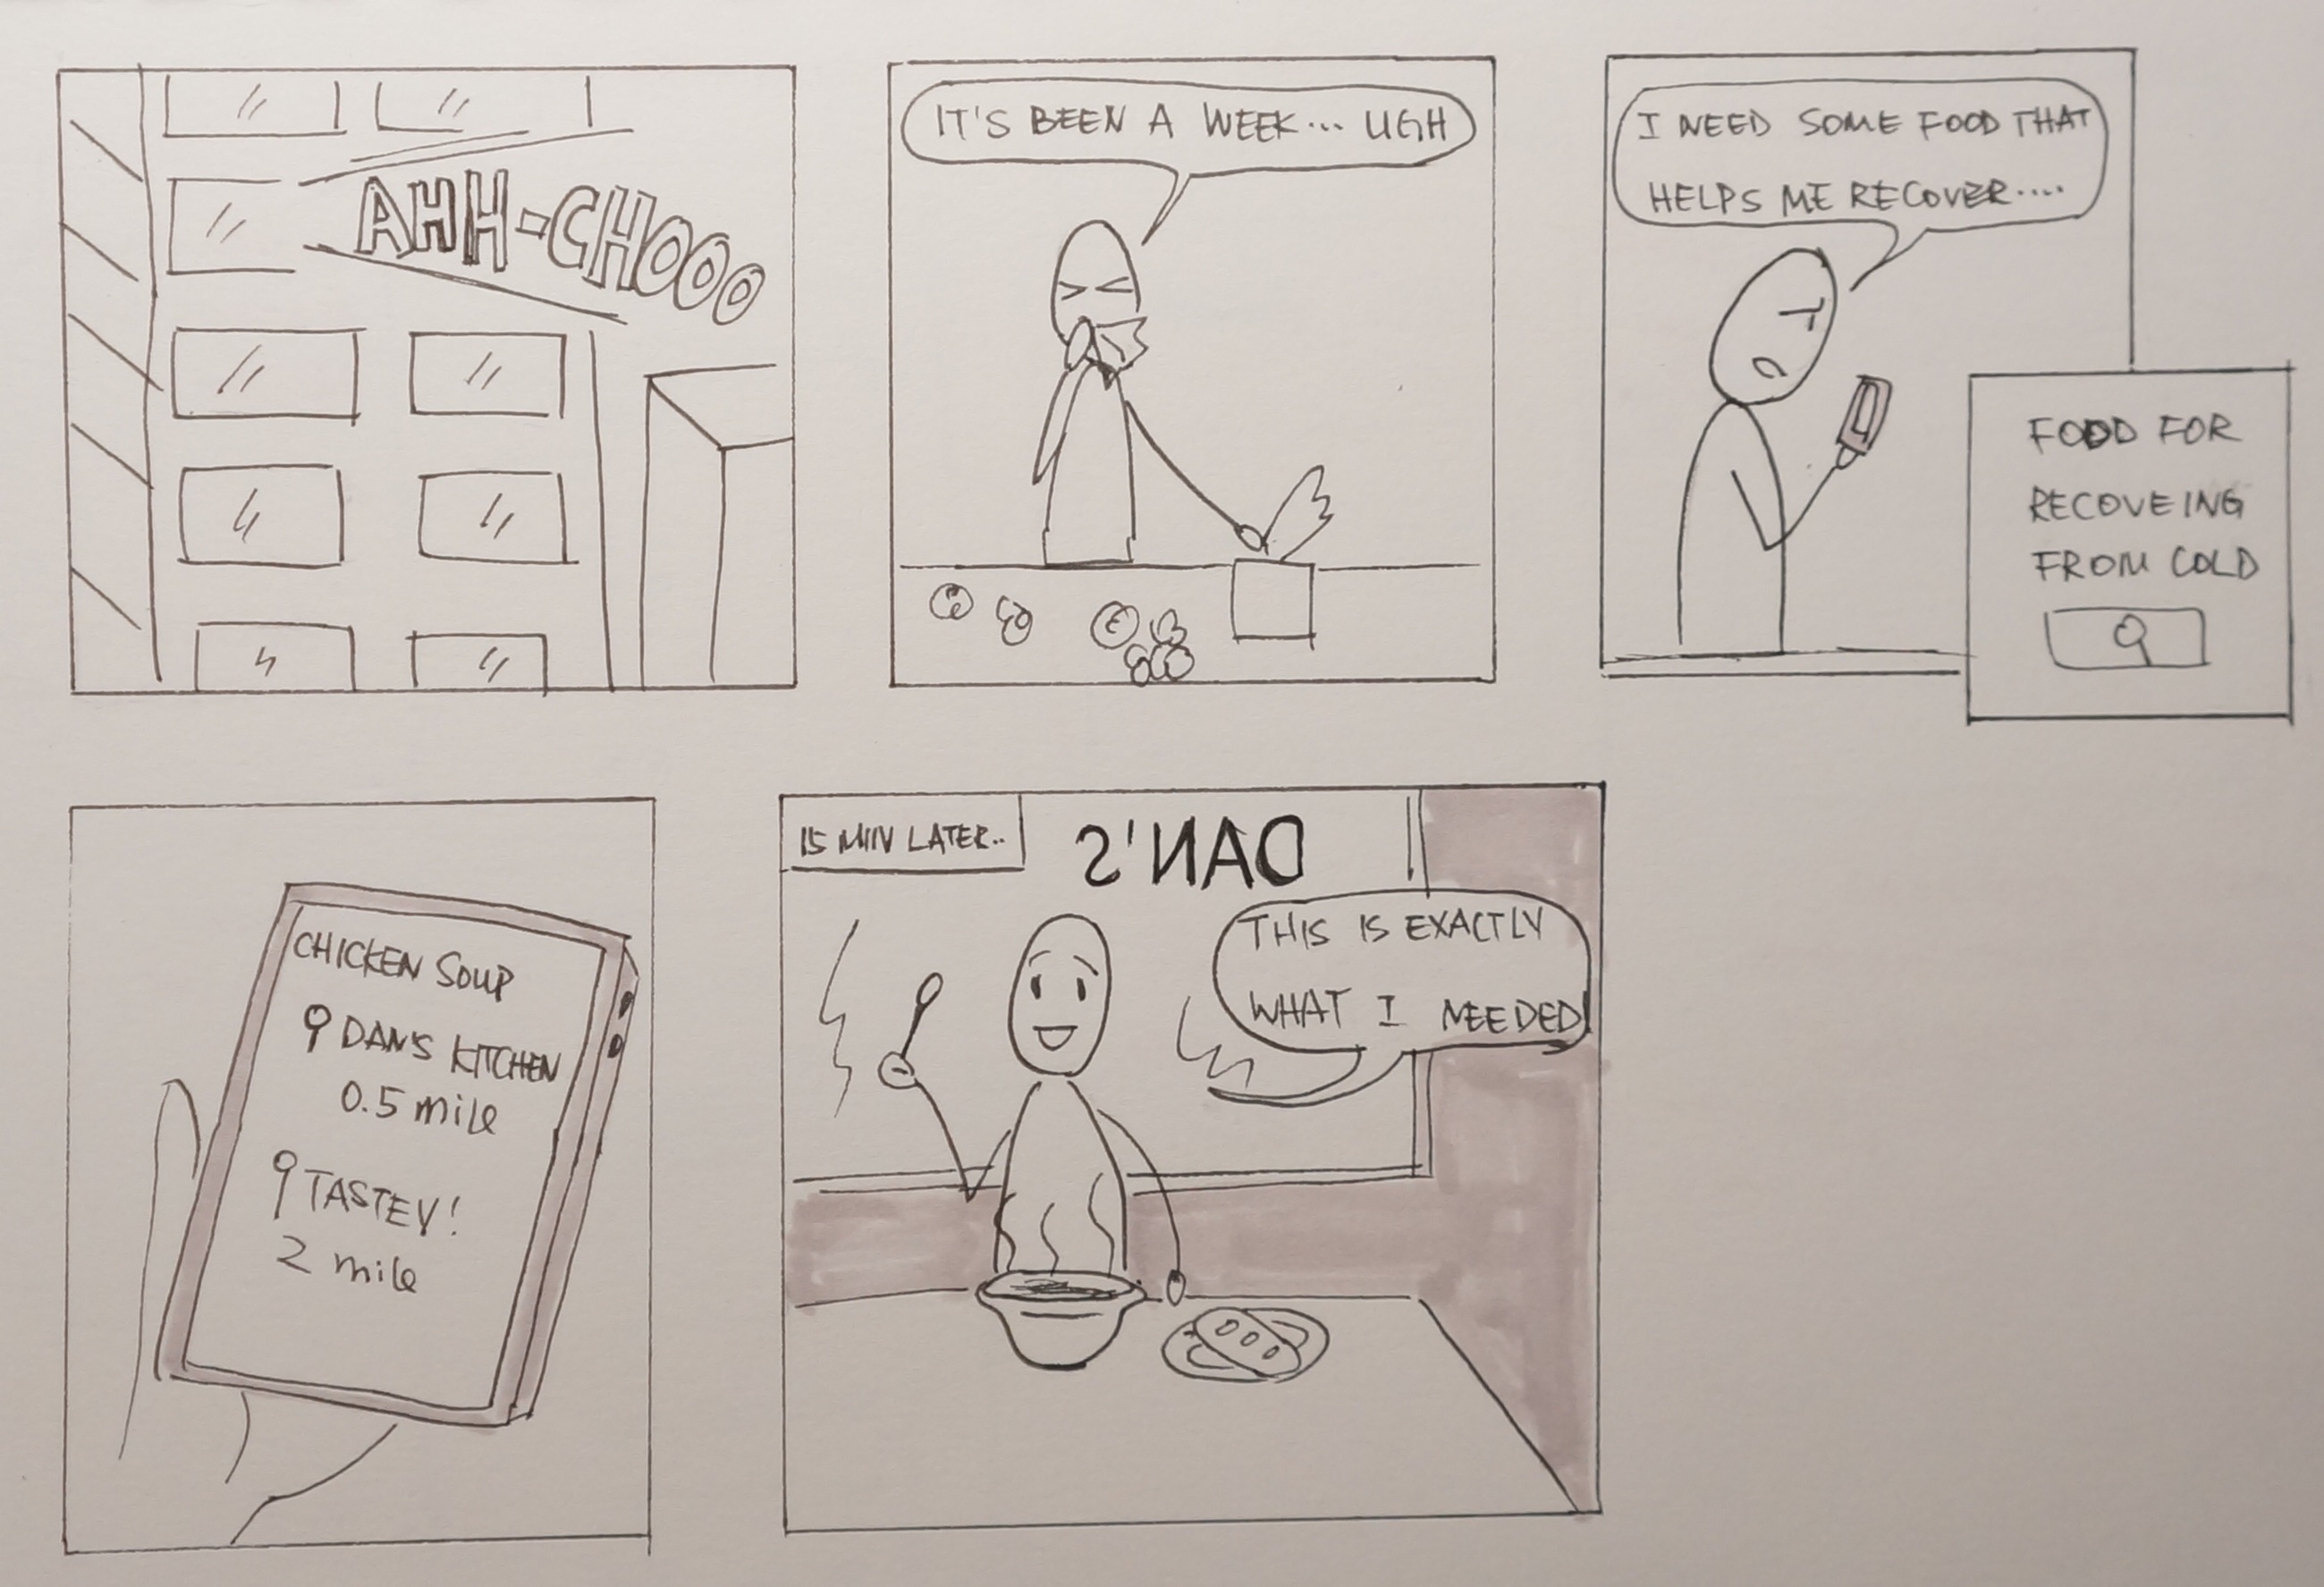 AHH-CHOOO
IT'S BEEN A WEEK... UGH
I NEED SOME FOOD THAT
HELPS ME RECOVER....
FOOD FOR
RECOVEING
FROM COLD
CHICKEN SOUP
DAN'S KITCHEN
0.5 mile
TASTEY!
2 mile
15 MIN LATER..
DAN'S
THIS IS EXACTLY
WHAT I NEEDED